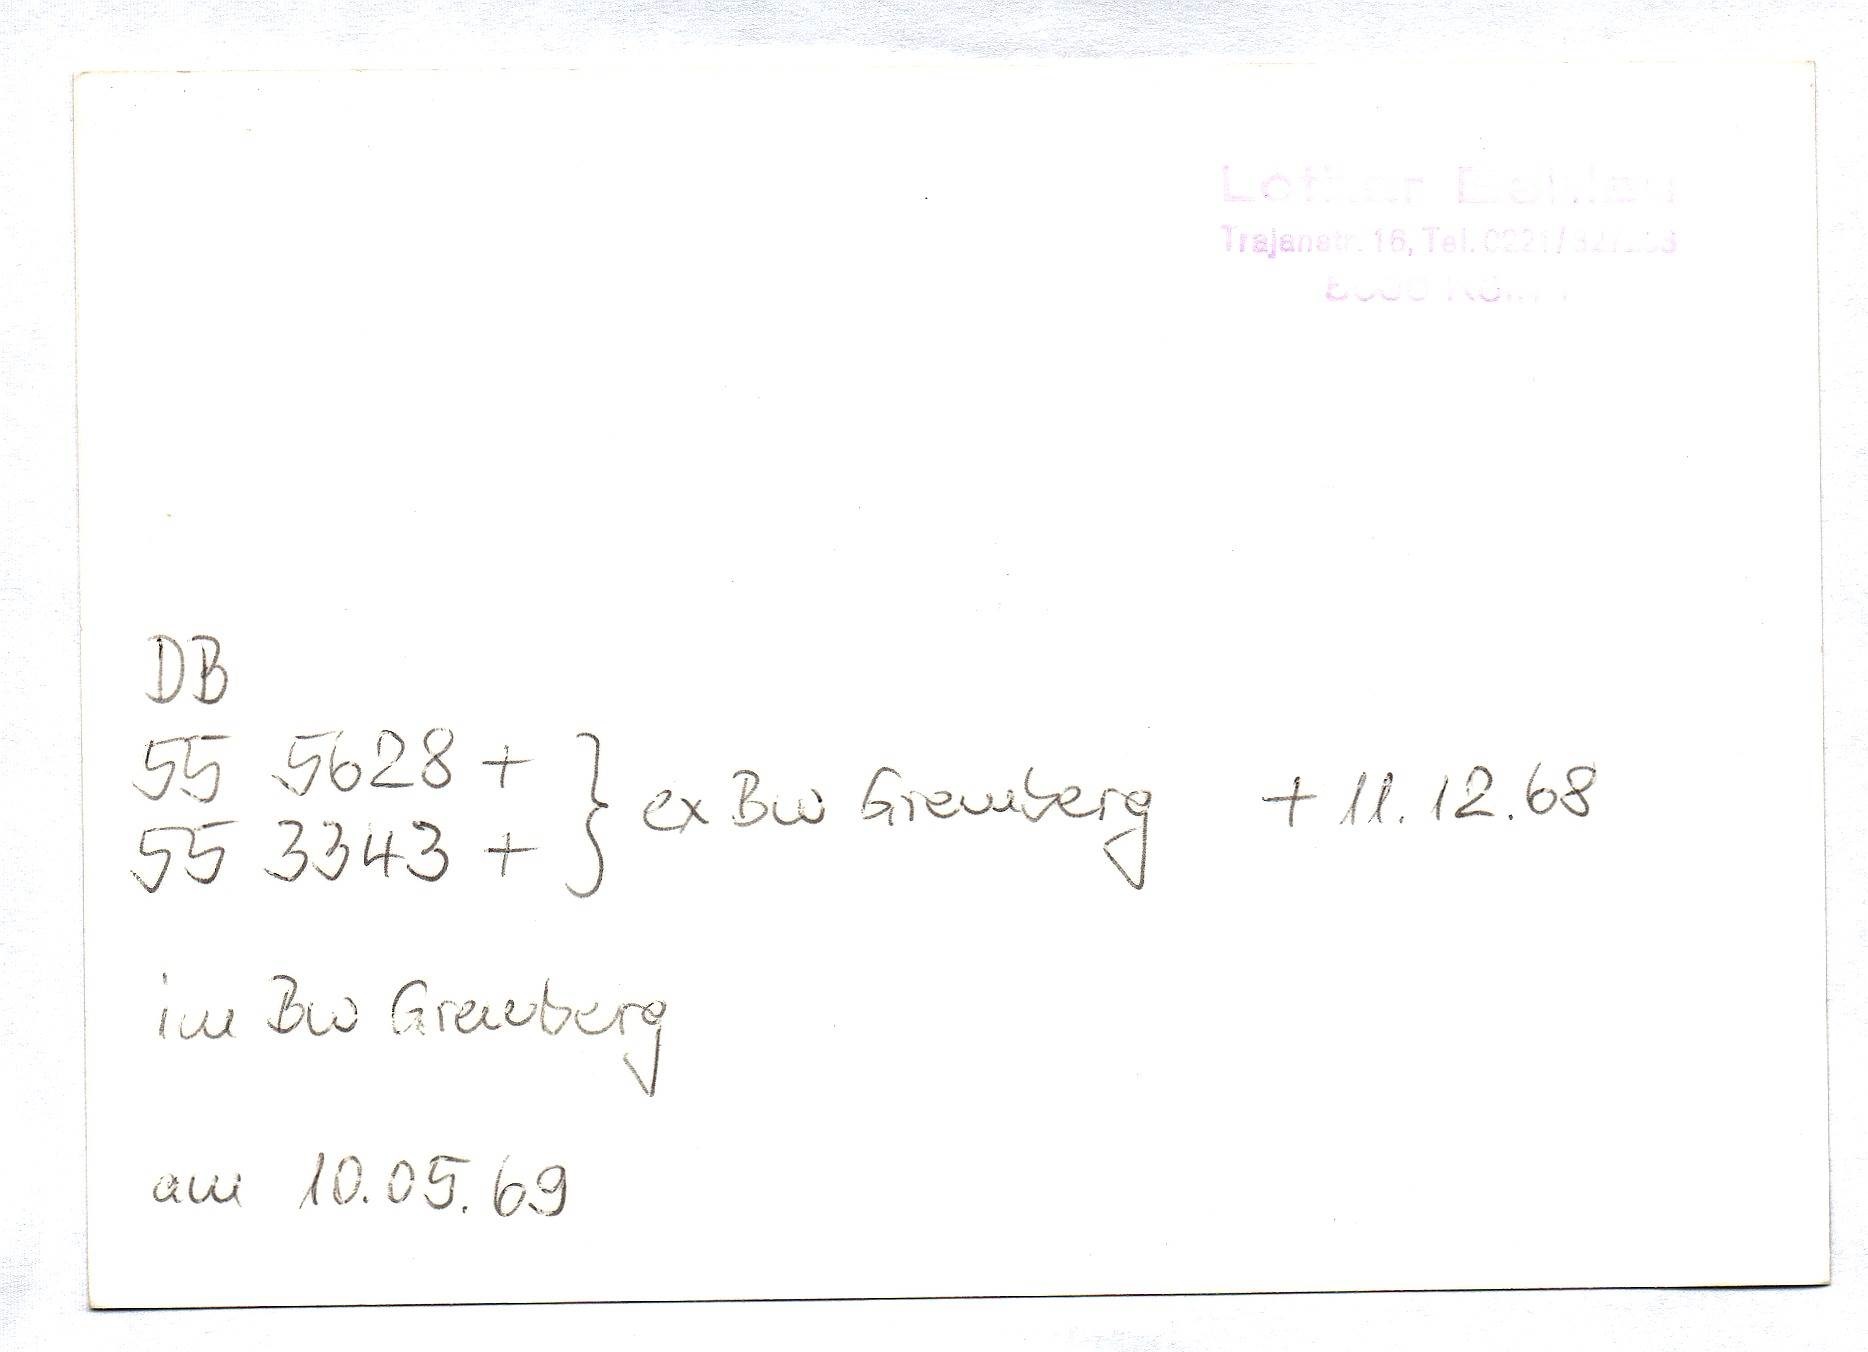 Lothar
Trajanstr. 16, Tel. 0221/
DB
55 5628 +
55 3343 + } ex Bw Gremberg + 11.12.68
im Bw Gremberg
am 10.05.69